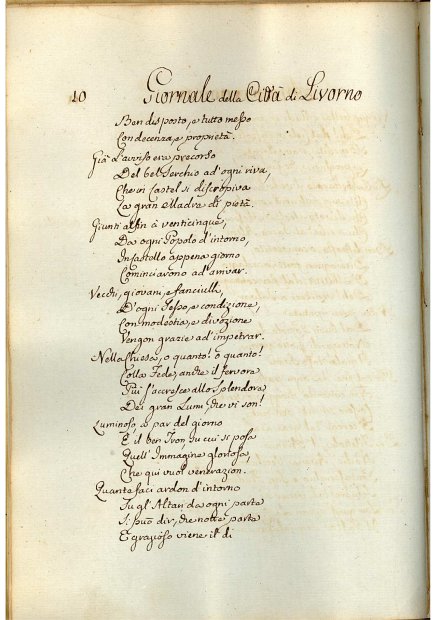 10 Giornale della Città di Livorno
Ben disposto, e tutto messo
Con decenza, e proprietà.
Già l'avviso era precorso
Del bel Serchio ad' ogni riva,
Che in Castel si discopriva
La gran Madre di pietà.
Giunti alfin à venticinque,
Da ogni Popolo d'intorno,
In Castello appena giorno
Cominciavano ad' arrivar.
Vecchi, giovani, e fanciulli,
D'ogni sesso, e condizione,
Con modestia, e divozione
Vengon grazie ad' impetrar.
Nella Chiesa, o quanto! o quanto!
Colla Fede, anche il fervore
Più s'accresce allo Splendore
Dei gran Lumi, che vi son!
Luminoso, a par del giorno
È il ben Tron, su cui si posa
Quell' Immagine gloriosa,
Che qui vuol venerazion.
Quante faci ardon d'intorno
Su gl' Altari da ogni parte
Si può dir, che notte parte
E grazioso viene il dì